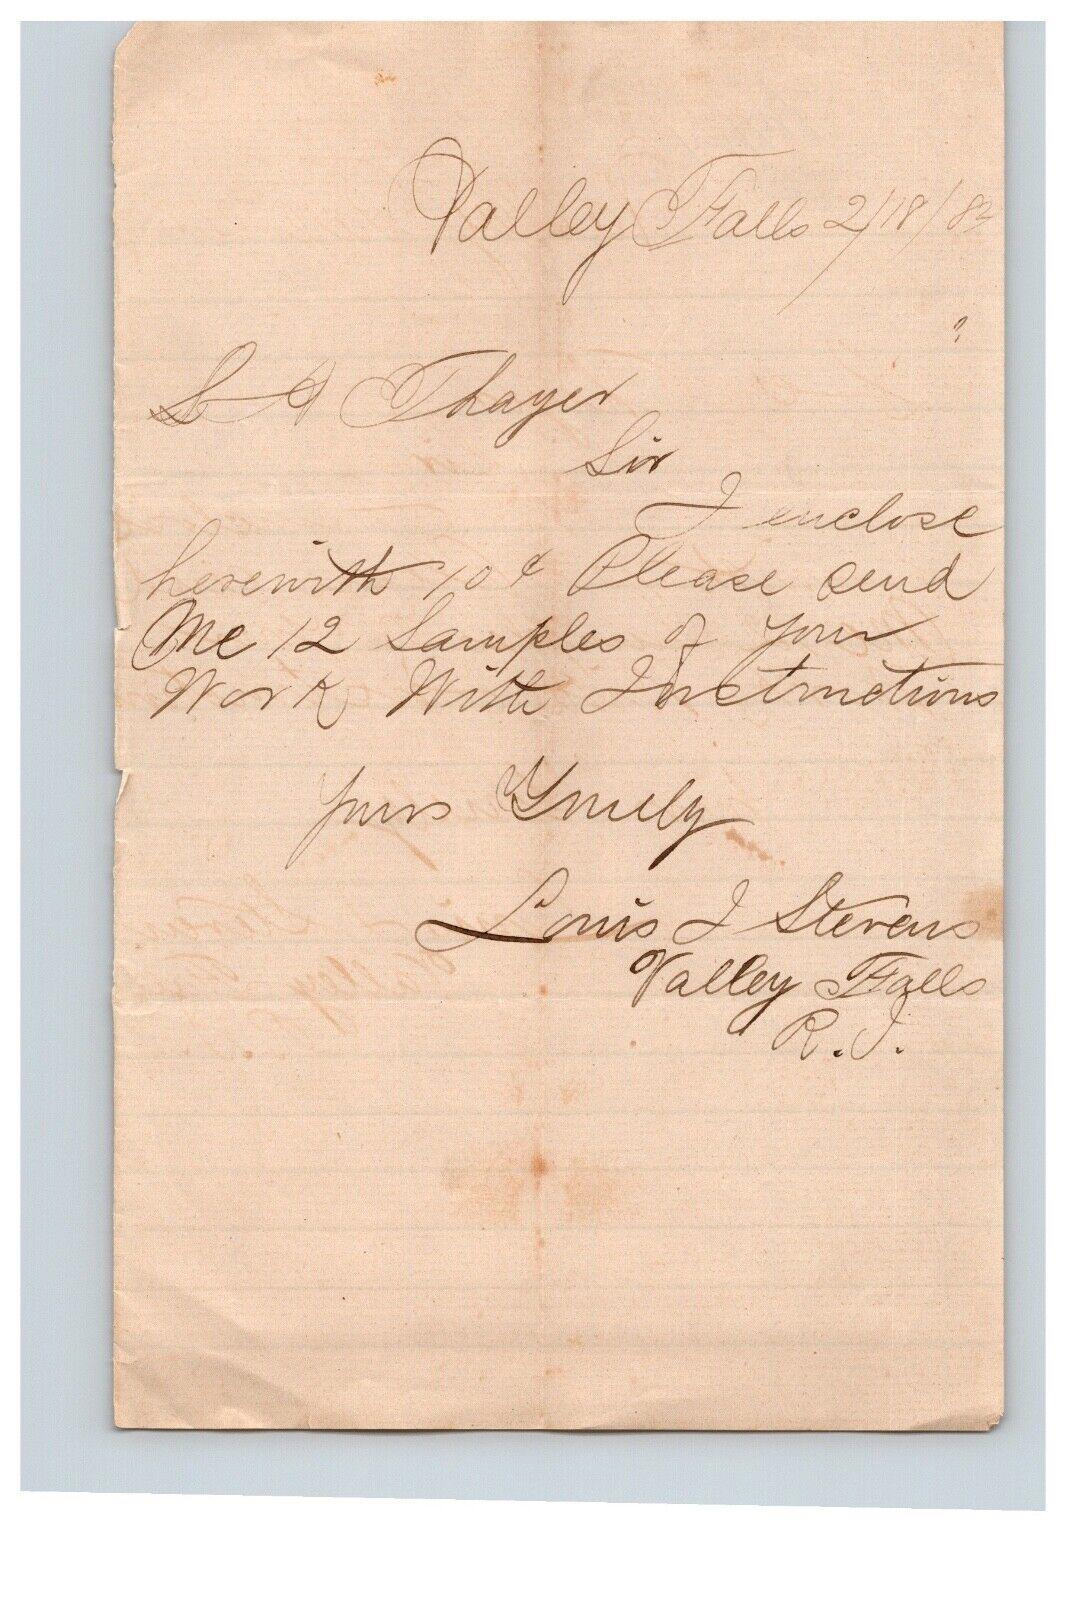 Valley Falls 2/18/82
S A Thayer
Sir
I enclose
herewith 10¢ Please send
Me 12 Samples of Your
Work With Instructions
Yours Truely
Louis J Stevens
Valley Falls
R. I.